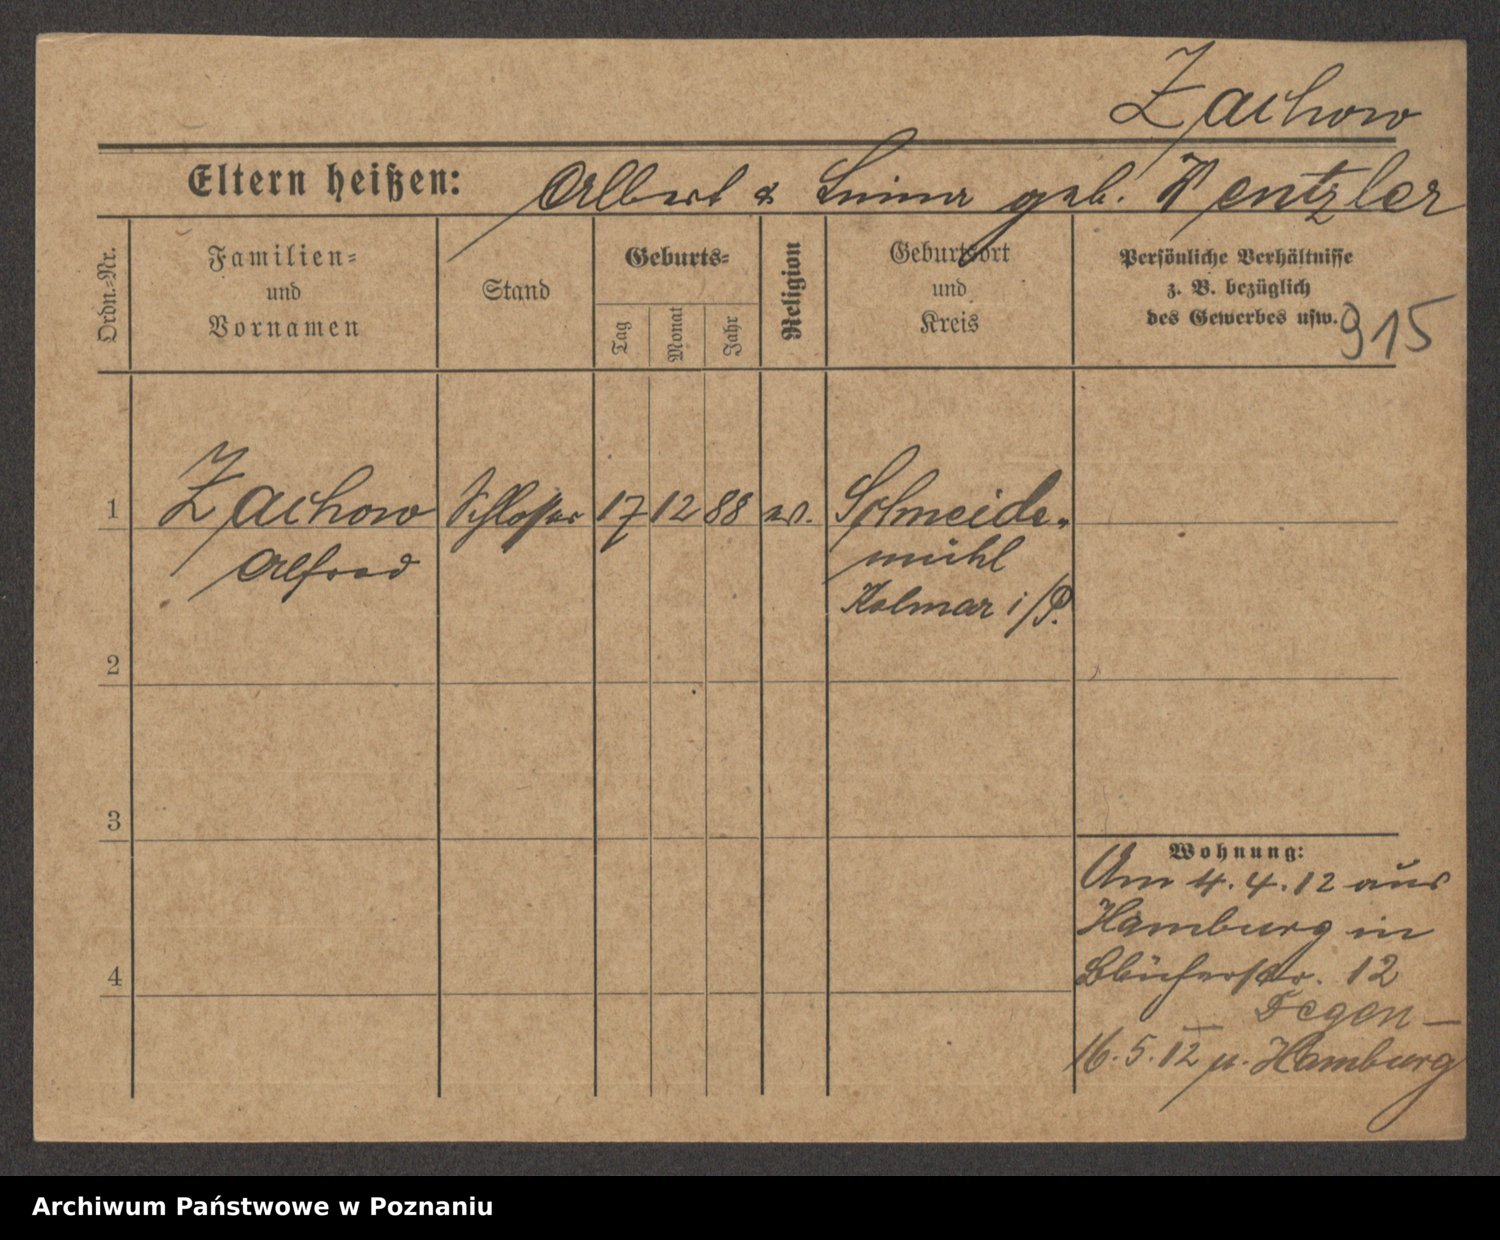 Zachow
Eltern heißen: Albert & geb. Wentzler
Ordn.-Nr.
Familien-
und
Vornamen
Stand
Geburts-
Tag
Monat
Jahr
Religion
Geburtsort
und
Kreis
Persönliche Verhältnisse
z. B. bezüglich
des Gewerbes usw.
915
1 Zachow Schlosser 17 12 88 ev. Schneide-
Alfred mühl
Kolmar i/P.
2
3
Wohnung:
Am 4.4.12 aus
Hamburg in
4 Blücherstr. 12
Degen –
16.5.12 n. Hamburg
Archiwum Państwowe w Poznaniu